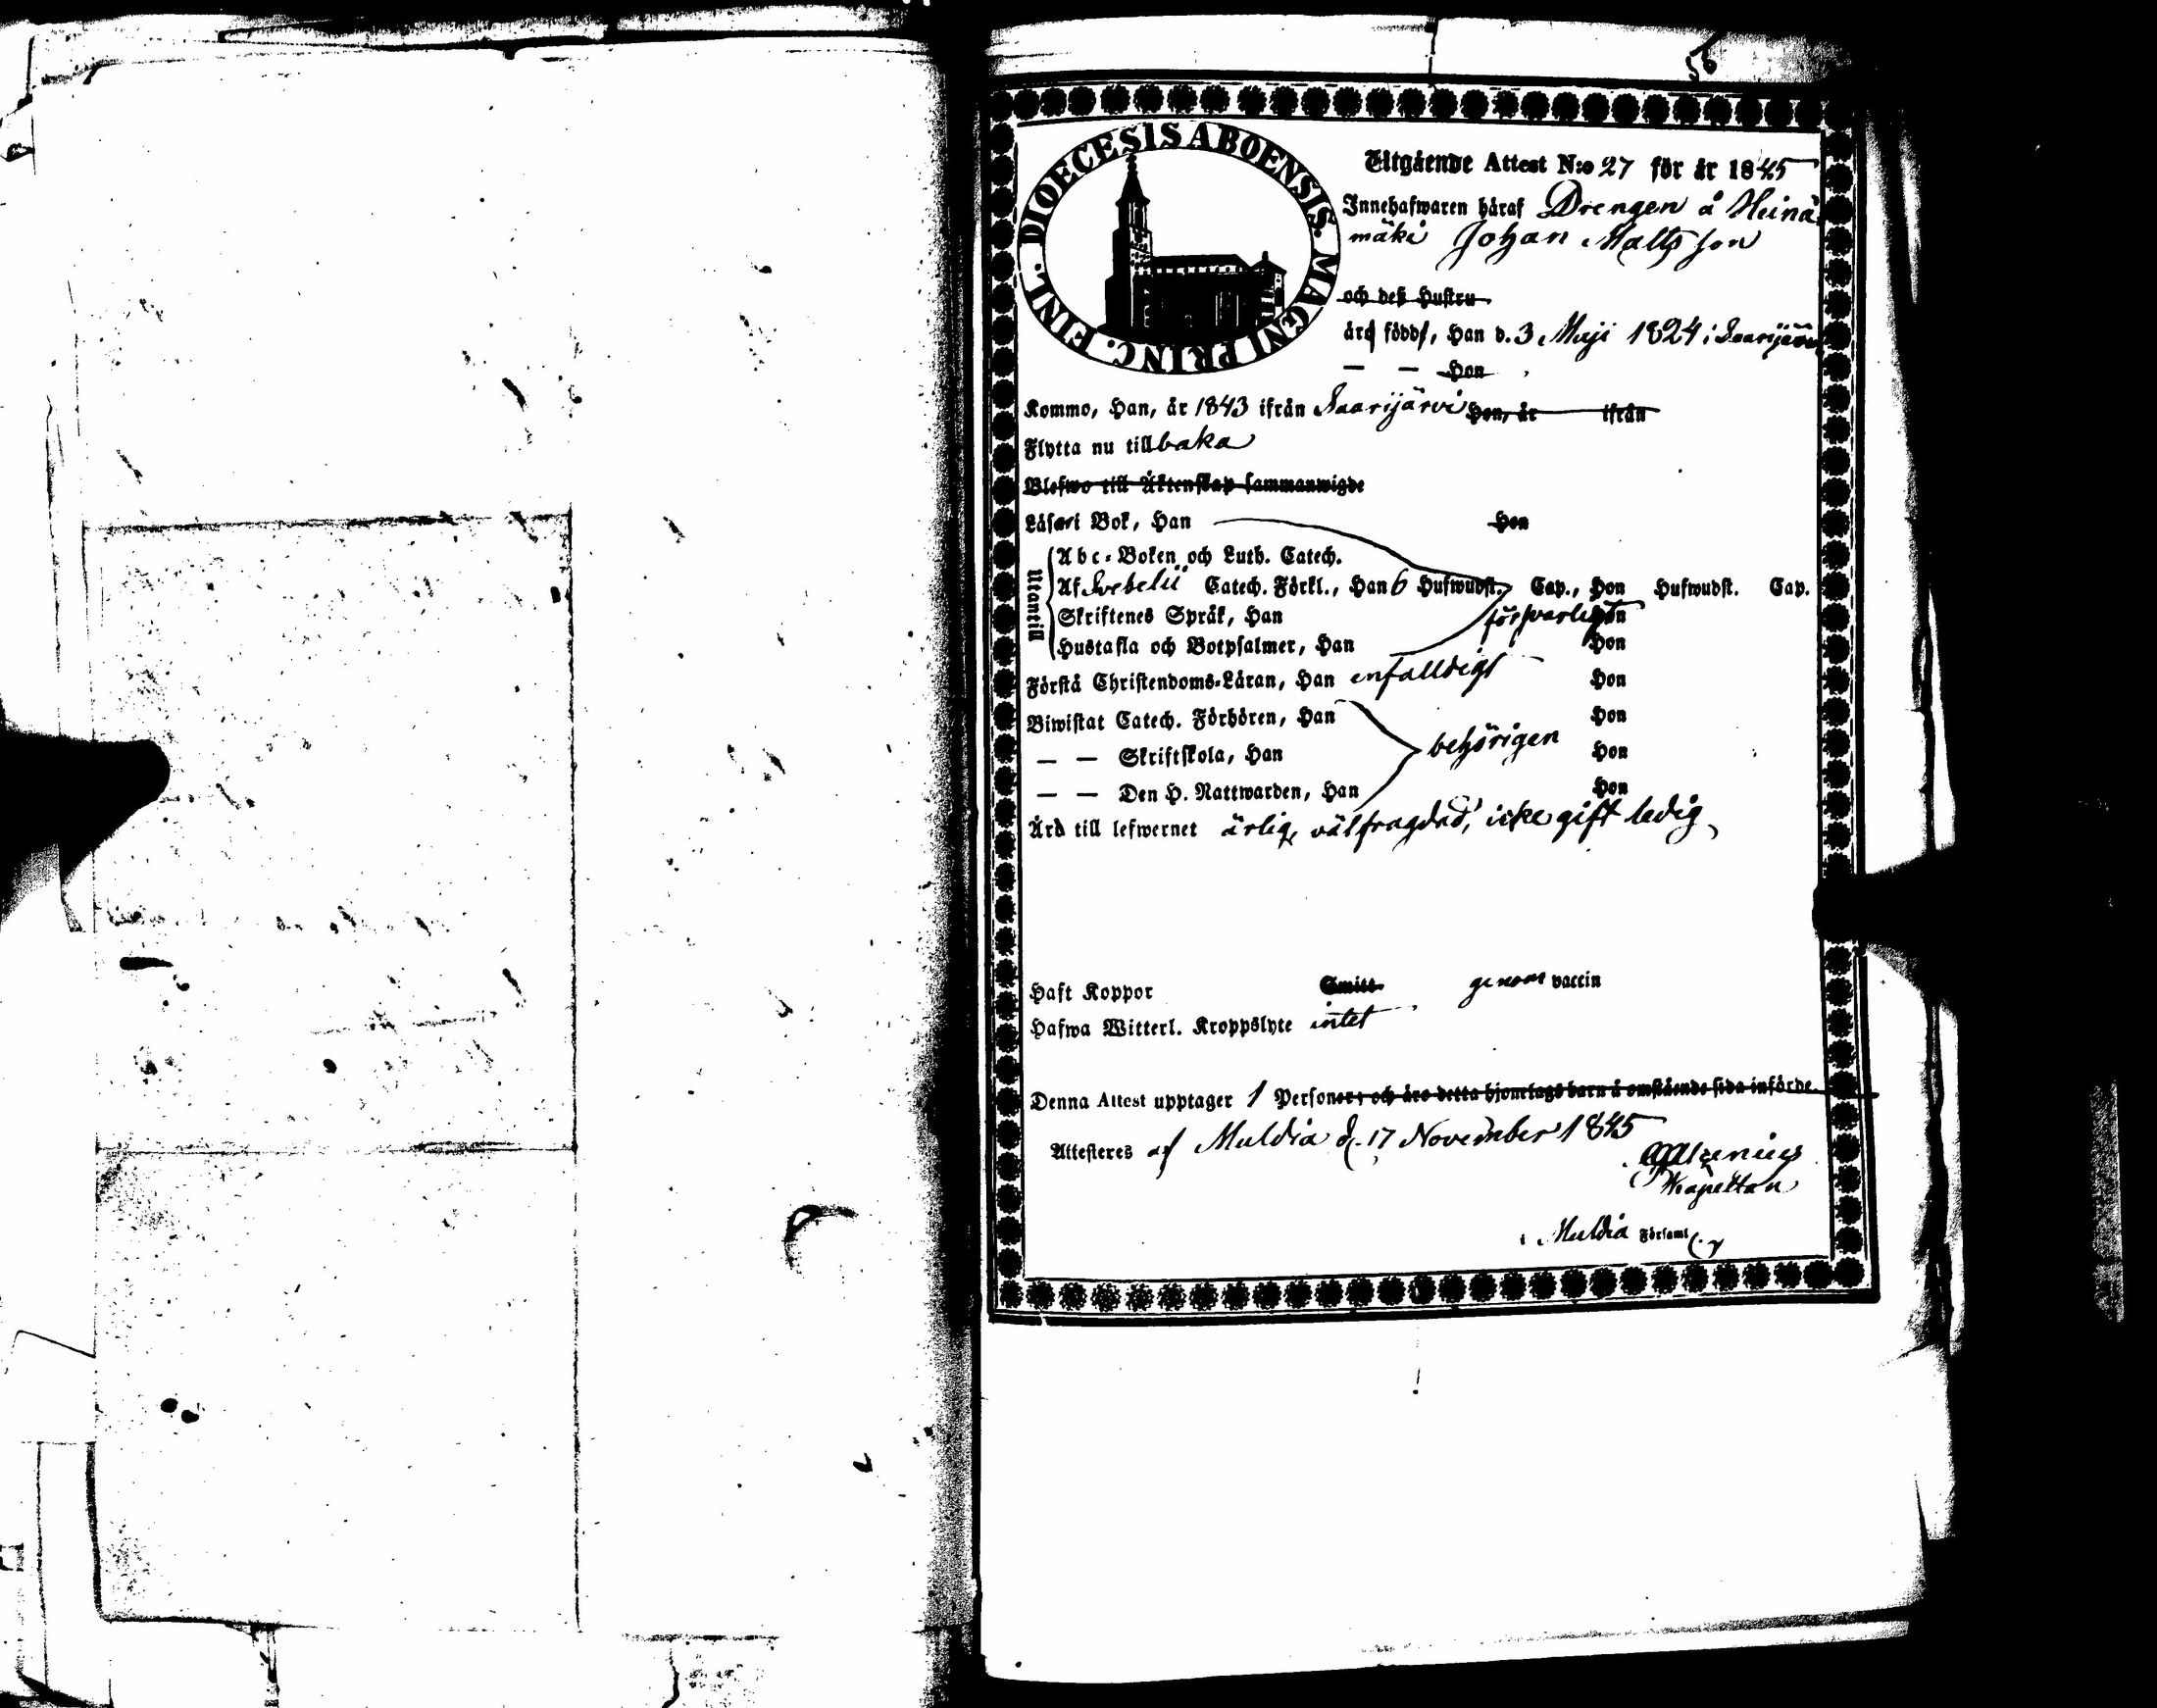 56
DIOECESIS ABOENSIS. MAGNI PRINC. FINL.
Utgående Attest N:o 27 för år 1845
Innehafwaren häraf Drengen å Heinä
mäki Johan Matts son
och deß Hustru
äro födde, Han d. 3 Maji 1824 i Saarijärvi
— — Hon
Kommo, Han, år 1843 ifrån Saarijärvi Hon, år ifrån
Flytta nu tillbaka
Blefwo till Äktenskap sammanwigde
Läser i Bok, Han Hon
Utantill
Abc-Boken och Luth. Catech.
Af Svebelii Catech. Förkl., Han 6 Hufwudst. Cap., Hon Hufwudst. Cap.
Skriftenes Språk, Han försvarligt Hon
Hustafla och Botpsalmer, Han Hon
Förstå Christendoms-Läran, Han enfalldigt Hon
Biwistat Catech. Förhören, Han Hon
— — Skriftskola, Han behörigen Hon
— — Den H. Nattwarden, Han Hon
Ärd till lefwernet ärlig, välfrägdad, icke gift ledig
Haft Koppor Smitt genom vaccin
Hafwa Witterl. Kroppslyte intet
Denna Attest upptager 1 Personer; och äro detta hjonelags barn å omstående sida införde.
Attesteres af Muldia d. 17 November 1845
Kapellan
i Muldia Församl.